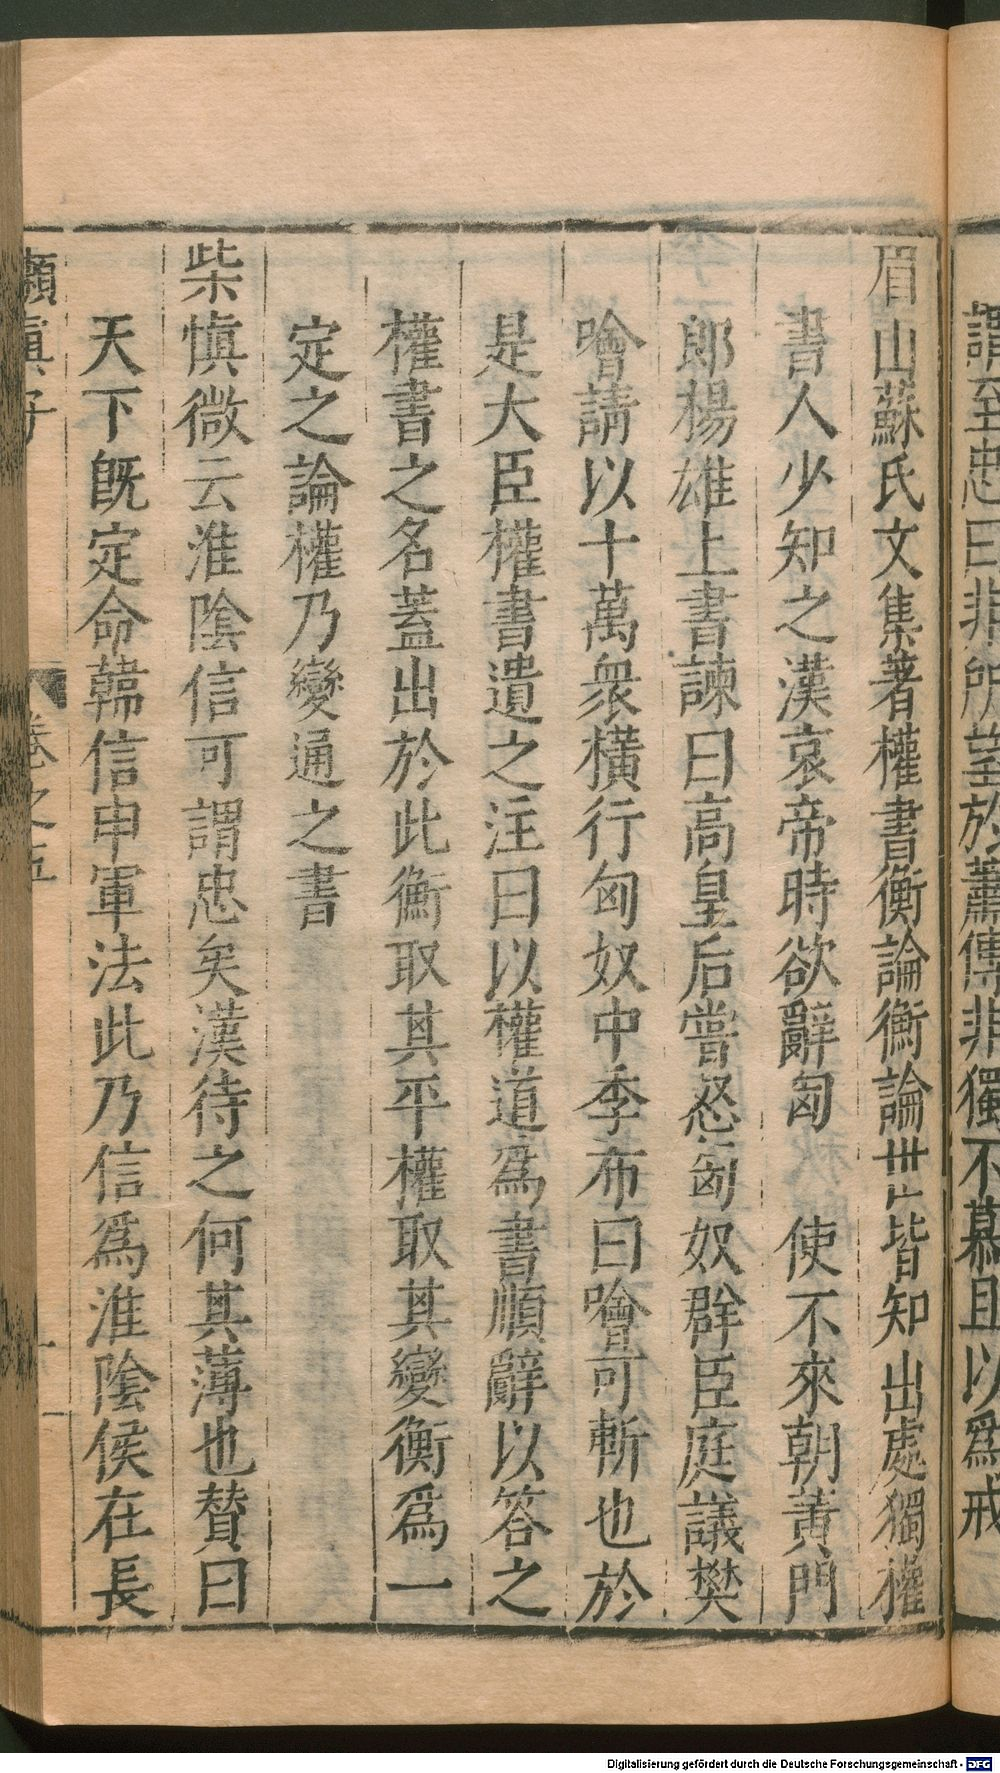 謂至忠曰非所望於蕭傅非獨不慕且以爲戒
眉山蘇氏文集著權書衡論衡論世皆知出處獨權
書人少知之漢哀帝時欲辭匈 使不來朝黄門
郎楊雄上書諫曰高皇后嘗怒匈奴群臣庭議樊
噲請以十萬衆橫行匈奴中季布曰噲可斬也於
是大臣權書遺之注曰以權道爲書順辭以答之
權書之名蓋出於此衡取其平權取其變衡爲一
定之論權乃變通之書
柴慎微云淮陰信可謂忠矣漢待之何其薄也贊曰
天下既定命韓信申軍法此乃信爲淮陰侯在長
嬾眞子 卷之五 十一
Digitalisierung gefördert durch die Deutsche Forschungsgemeinschaft - DFG